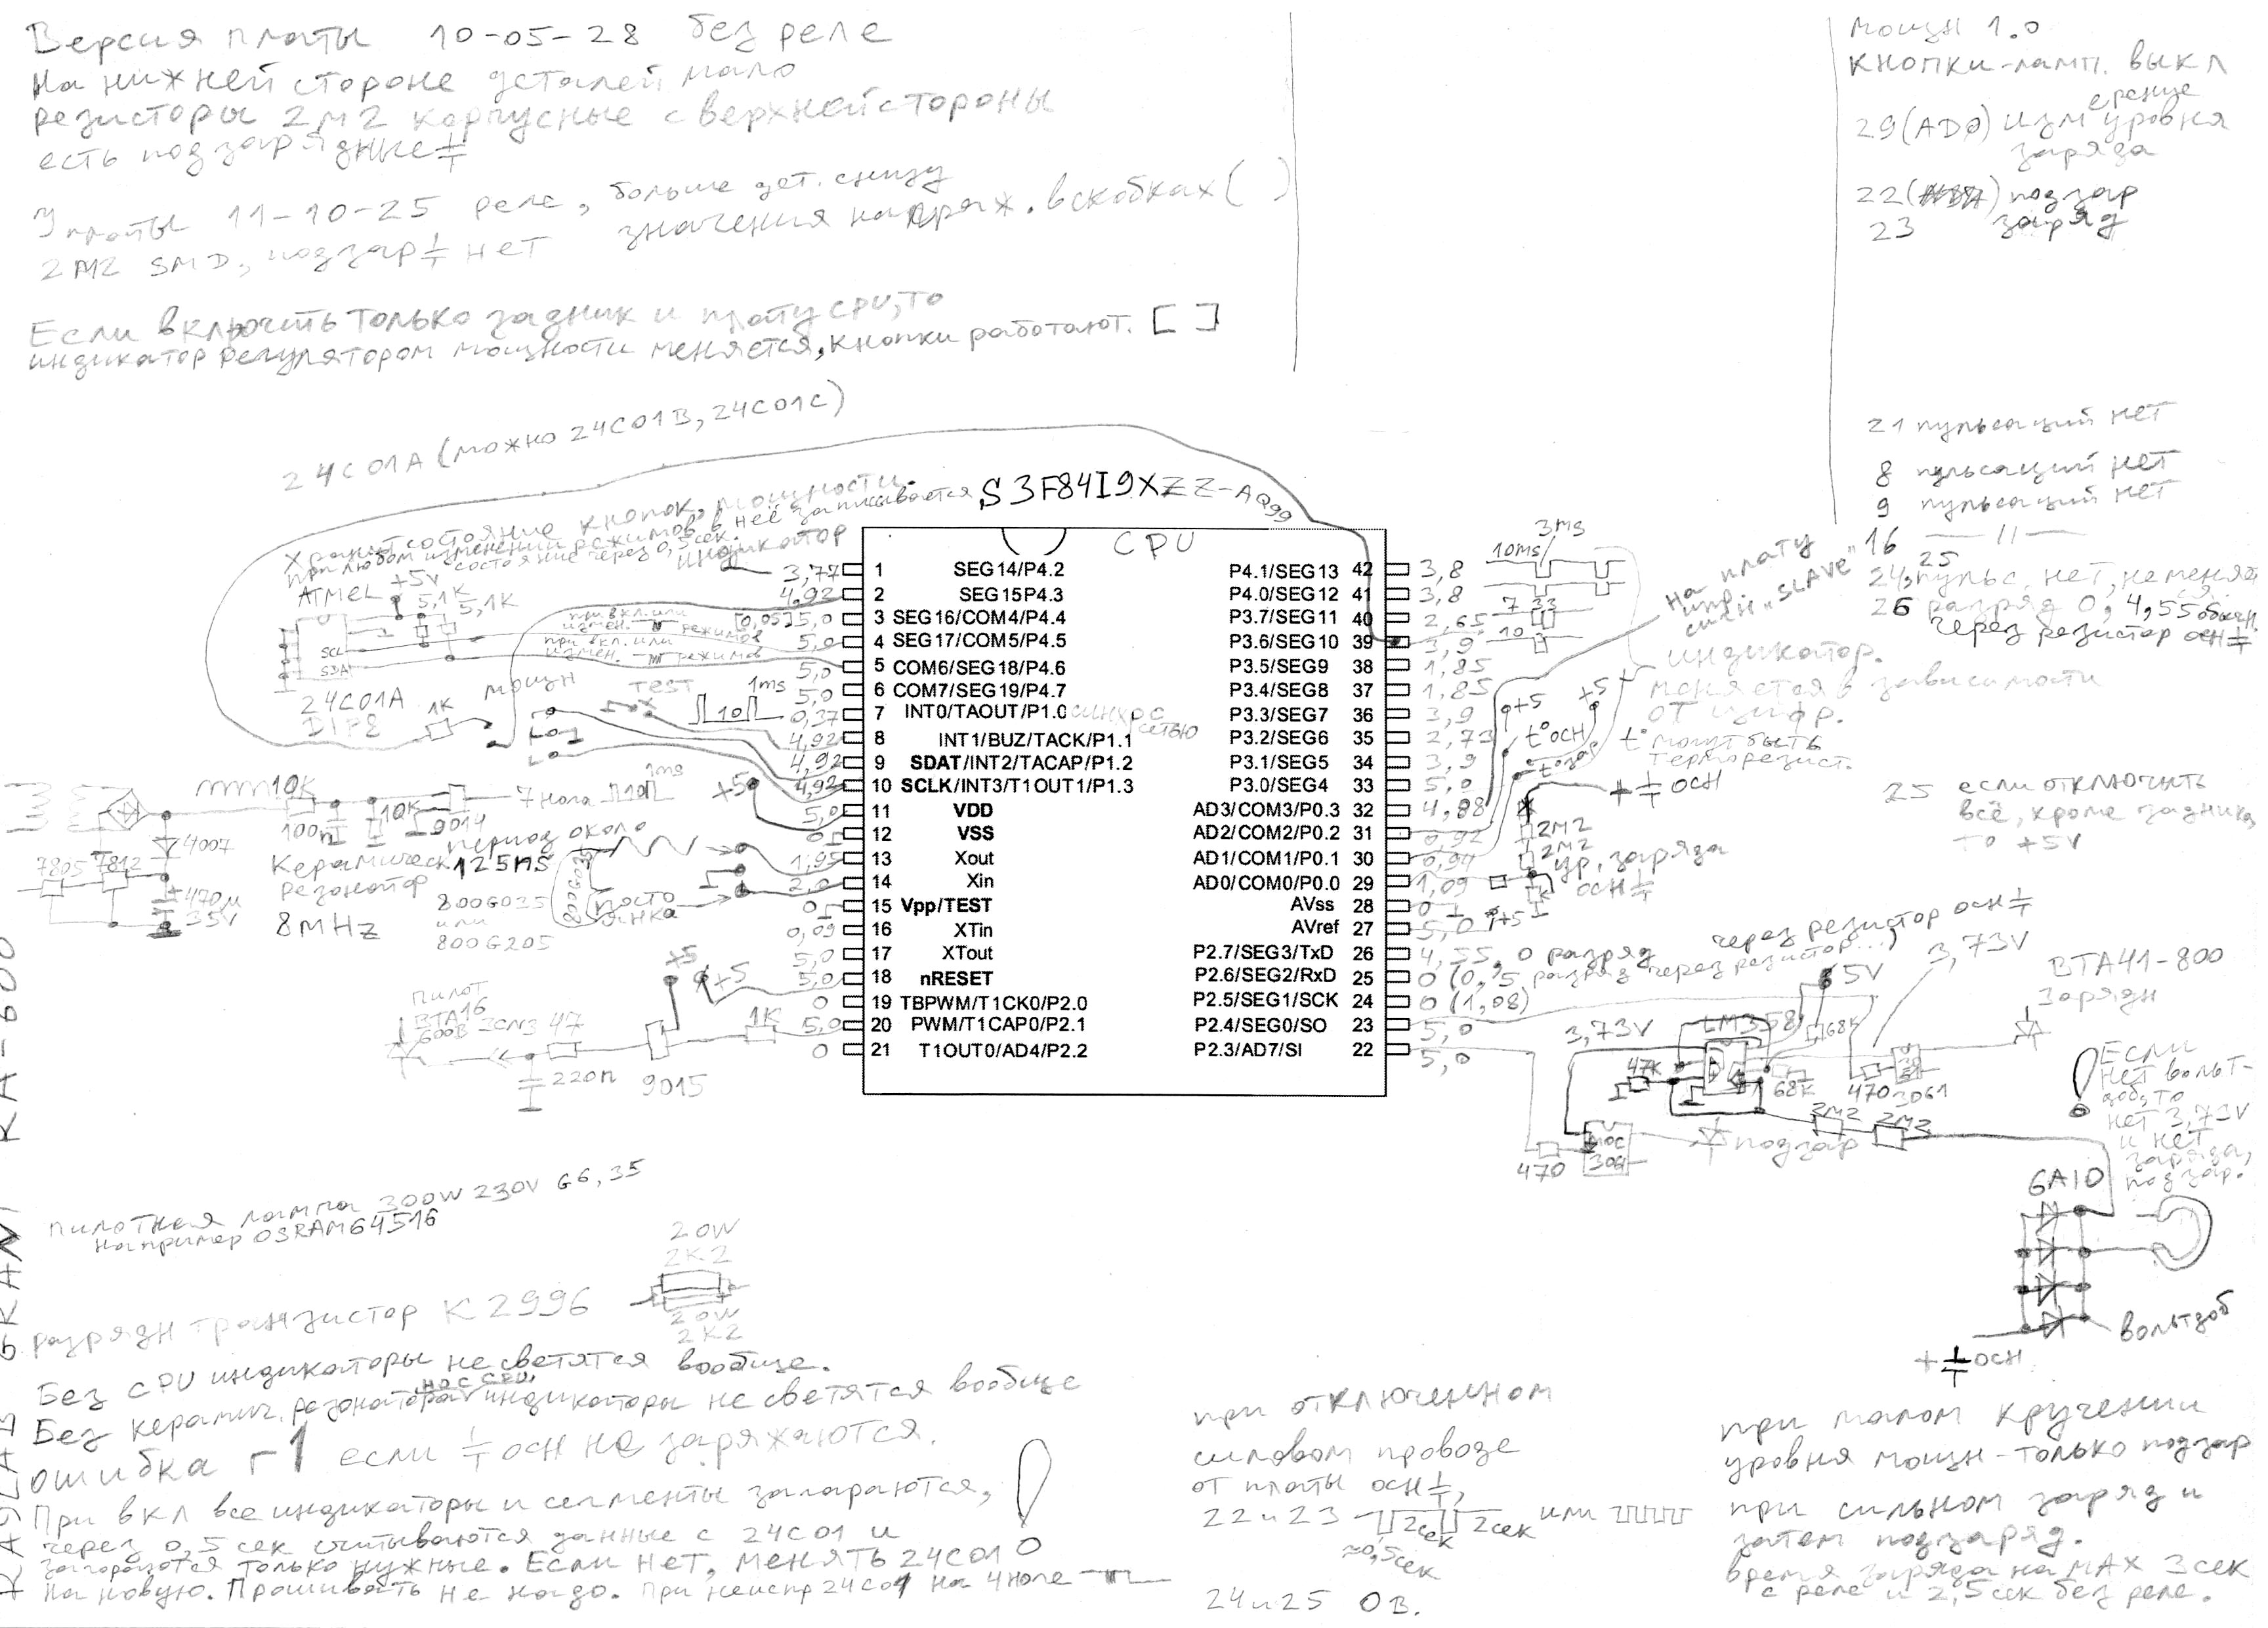 Версия платы 10-05-28 без реле
На нижней стороне деталей мало
резисторы 2м2 корпусные с верхней стороны
есть подзарядные
У платы 11-10-25 реле, больше дет. снизу
2М2 SMD, подзар нет значения напряж. в скобках ( )
Если включить только задник и плату CPU, то
индикатор регулятором мощности меняется, кнопки работают. [ ]
мощн 1.0
кнопки-ламп. выкл
29(AD0) измерение уровня
заряда
22( ) подзар
23 заряд
21 пульсаций нет
8 пульсаций нет
9 пульсаций нет
16 — 11 —
25
24, пульс. нет, не меняется
26 разряд 0, 4,55 обычн.
через резистор осн
25 если отключить
всё, кроме задника,
то +5V
24C01A (можно 24C01B, 24C01C)
Хранит состояние кнопок, мощности.
При любом изменении режимов в неё записывается
состояние через 0,5 сек.
индикатор
ATMEL +5V
5,1K 5,1K
SCL
SDA
24C01A
DIP8
1K
мощн
TEST
1ms
10
при вкл. или
измен. режимов
при вкл. или
измен. режимов
S3F84I9XZZ-AQ99
CPU
3,77 1 SEG14/P4.2
4,92 2 SEG15P4.3
[0,05]5,0 3 SEG16/COM4/P4.4
5,0 4 SEG17/COM5/P4.5
5,0 5 COM6/SEG18/P4.6
5,0 6 COM7/SEG19/P4.7
0,37 7 INT0/TAOUT/P1.0 синхр с сетью
4,92 8 INT1/BUZ/TACK/P1.1
4,92 9 SDAT/INT2/TACAP/P1.2
4,92 10 SCLK/INT3/T1OUT1/P1.3
5,0 11 VDD
0 12 VSS
1,95 13 Xout
2,0 14 Xin
0 15 Vpp/TEST
0,09 16 XTin
5,0 17 XTout
5,0 18 nRESET
0 19 TBPWM/T1CK0/P2.0
5,0 20 PWM/T1CAP0/P2.1
0 21 T1OUT0/AD4/P2.2
P4.1/SEG13 42 3,8
P4.0/SEG12 41 3,8
P3.7/SEG11 40 2,65
P3.6/SEG10 39 3,9
P3.5/SEG9 38 1,85
P3.4/SEG8 37 1,85
P3.3/SEG7 36 3,9
P3.2/SEG6 35 2,73
P3.1/SEG5 34 3,9
P3.0/SEG4 33 5,0
AD3/COM3/P0.3 32 4,88
AD2/COM2/P0.2 31 0,92
AD1/COM1/P0.1 30 0,94
AD0/COM0/P0.0 29 1,09
AVss 28 0
AVref 27 5,0 +5
P2.7/SEG3/TxD 26 4,55, 0 разряд через резистор осн
P2.6/SEG2/RxD 25 0 (0, 5 разряд через резистор...)
P2.5/SEG1/SCK 24 0 (1,08)
P2.4/SEG0/SO 23 5,0
P2.3/AD7/SI 22 5,0
3ms
10ms
7 33
10
На плату
имп.
синхр "SLAVE"
индикатор.
меняется в зависимости
от цифр.
t° могут быть
терморезист.
+5
+5
t° осн
+ осн
2М2
2М2
ур. заряда
осн
10K
10K
100n
9014
7 нога 10
1ms
+5
4007
7805 7812
+470м
35V
Керамическ.
резонатор
8MHz
период около
125ns
800G035
или
800G205
постоянка
пилот
BTA16
600B 3CN3 47
220n
9015
1K
+5
+5
3,73V
3,73V
5V
LM358
47K
68K
68K
470 3061
BTA41-800
зарядн
470
MOC
3061
подзар
2М2 2М2
Если
нет вольт-
доб, то
нет 3,73V
и нет
заряда,
подзар.
6A10
вольтдоб
+ осн
пилотная лампа 300W 230V G6,35
например OSRAM64516
20W
2K2
20W
2K2
разрядн транзистор K2996
Без CPU индикаторы не светятся вообще.
Без керамич. резонатора на CPU, индикаторы не светятся вообще
ошибка r1 если осн не заряжаются.
При вкл все индикаторы и сегменты загораются,
через 0,5 сек считываются данные с 24C01 и
загораются только нужные. Если нет, менять 24C01
на новую. Прошивать не надо. При неиспр 24C01 на 4 ноге
при отключенном
силовом проводе
от платы осн,
22 и 23 2сек 2сек или
≈0,5сек
24 и 25 0В.
при малом кручении
уровня мощн-только подзар
при сильном заряд и
затем подзаряд.
время заряда на MAX 3сек
с реле и 2,5 сек без реле.